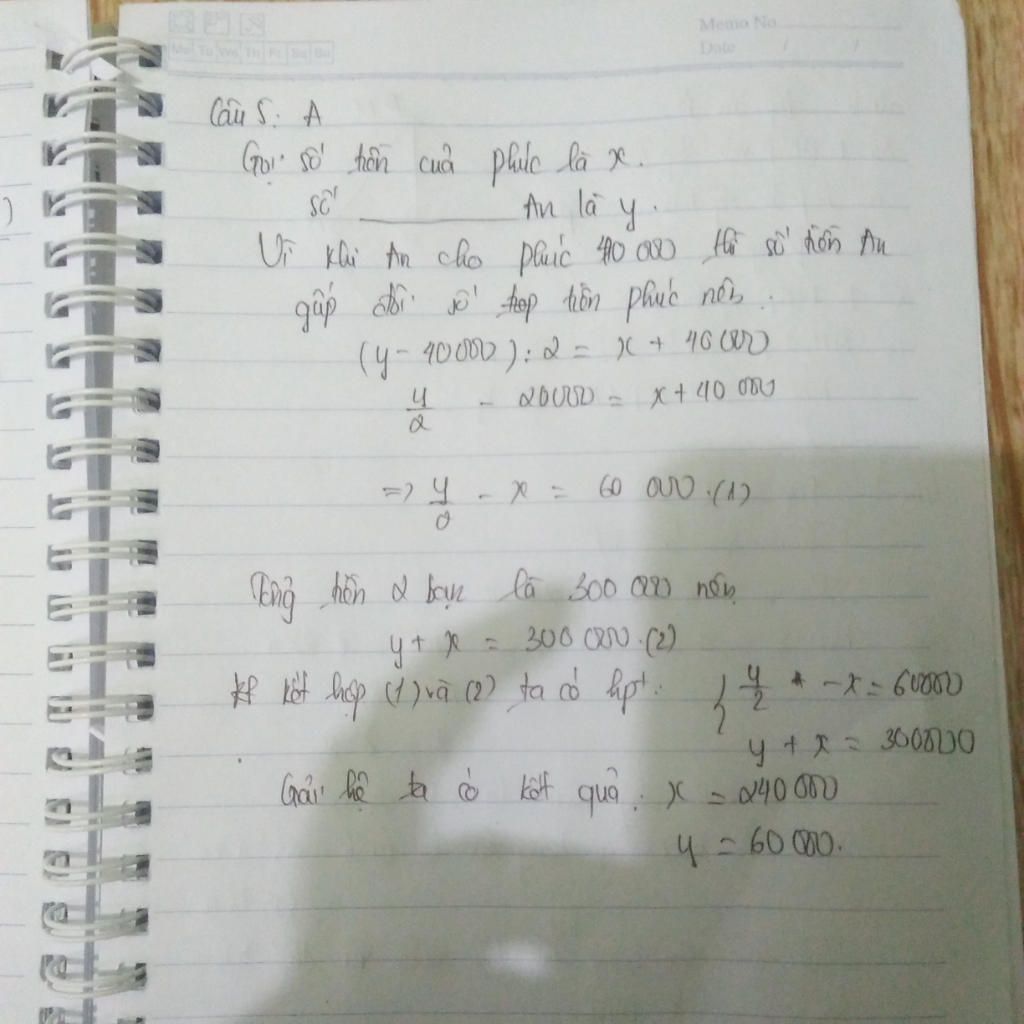 Memo No.
Date / /
Mo Tu We Th Fr Sa Su
Câu 5: A
Gọi số tiền của phúc là x.
số ________ An là y.
Vì khi An cho phúc 40 000 thì số tiền An
gấp đôi số tiền phúc nên.
(y - 40000) : 2 = x + 40 000
y/2 - 20000 = x + 40 000
=> y/2 - x = 60 000. (1)
Tổng tiền 2 bạn là 300 000 nên
y + x = 300 000. (2)
kết hợp (1) và (2) ta có hpt: { y/2 - x = 60000
y + x = 300000
Giải hệ ta có kết quả: x = 240 000
y = 60 000.
)